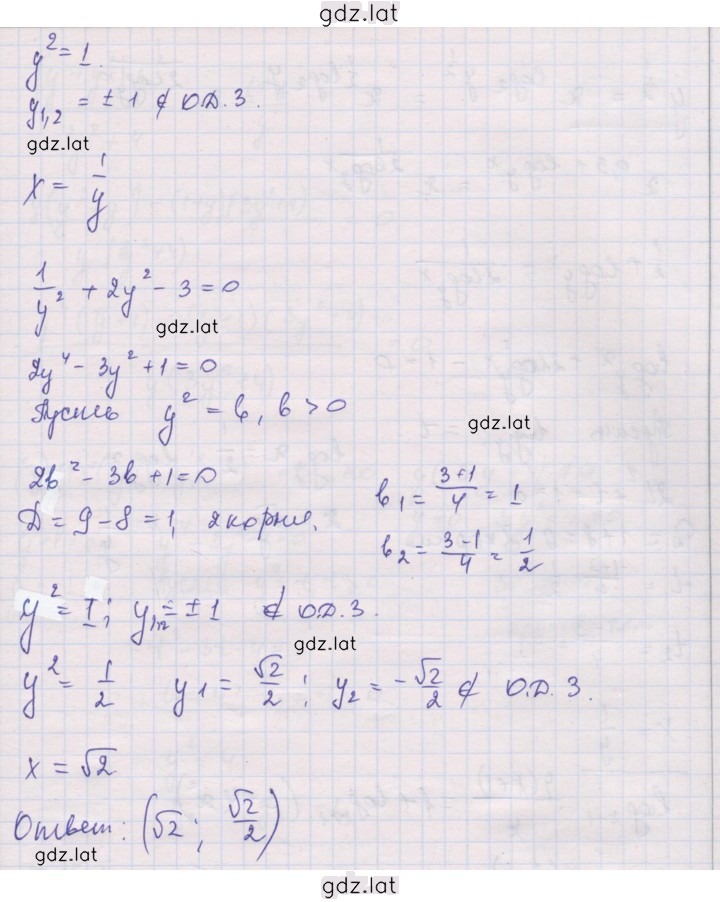 gdz.lat
y² = 1.
y₁,₂ = ± 1 ∉ О.Д.З.
gdz.lat
x = 1/y
1/y² + 2y² - 3 = 0
gdz.lat
2y⁴ - 3y² + 1 = 0
Пусть y² = b, b > 0
gdz.lat
2b² - 3b + 1 = 0
b₁ = (3+1)/4 = 1
Д = 9 - 8 = 1, 2 корня.
b₂ = (3-1)/4 = 1/2
y² = 1; y₁,₂ = ± 1 ∉ О.Д.З.
gdz.lat
y² = 1/2 y₁ = √2/2; y₂ = -√2/2 ∉ О.Д.З.
x = √2
Ответ: (√2; √2/2)
gdz.lat
gdz.lat